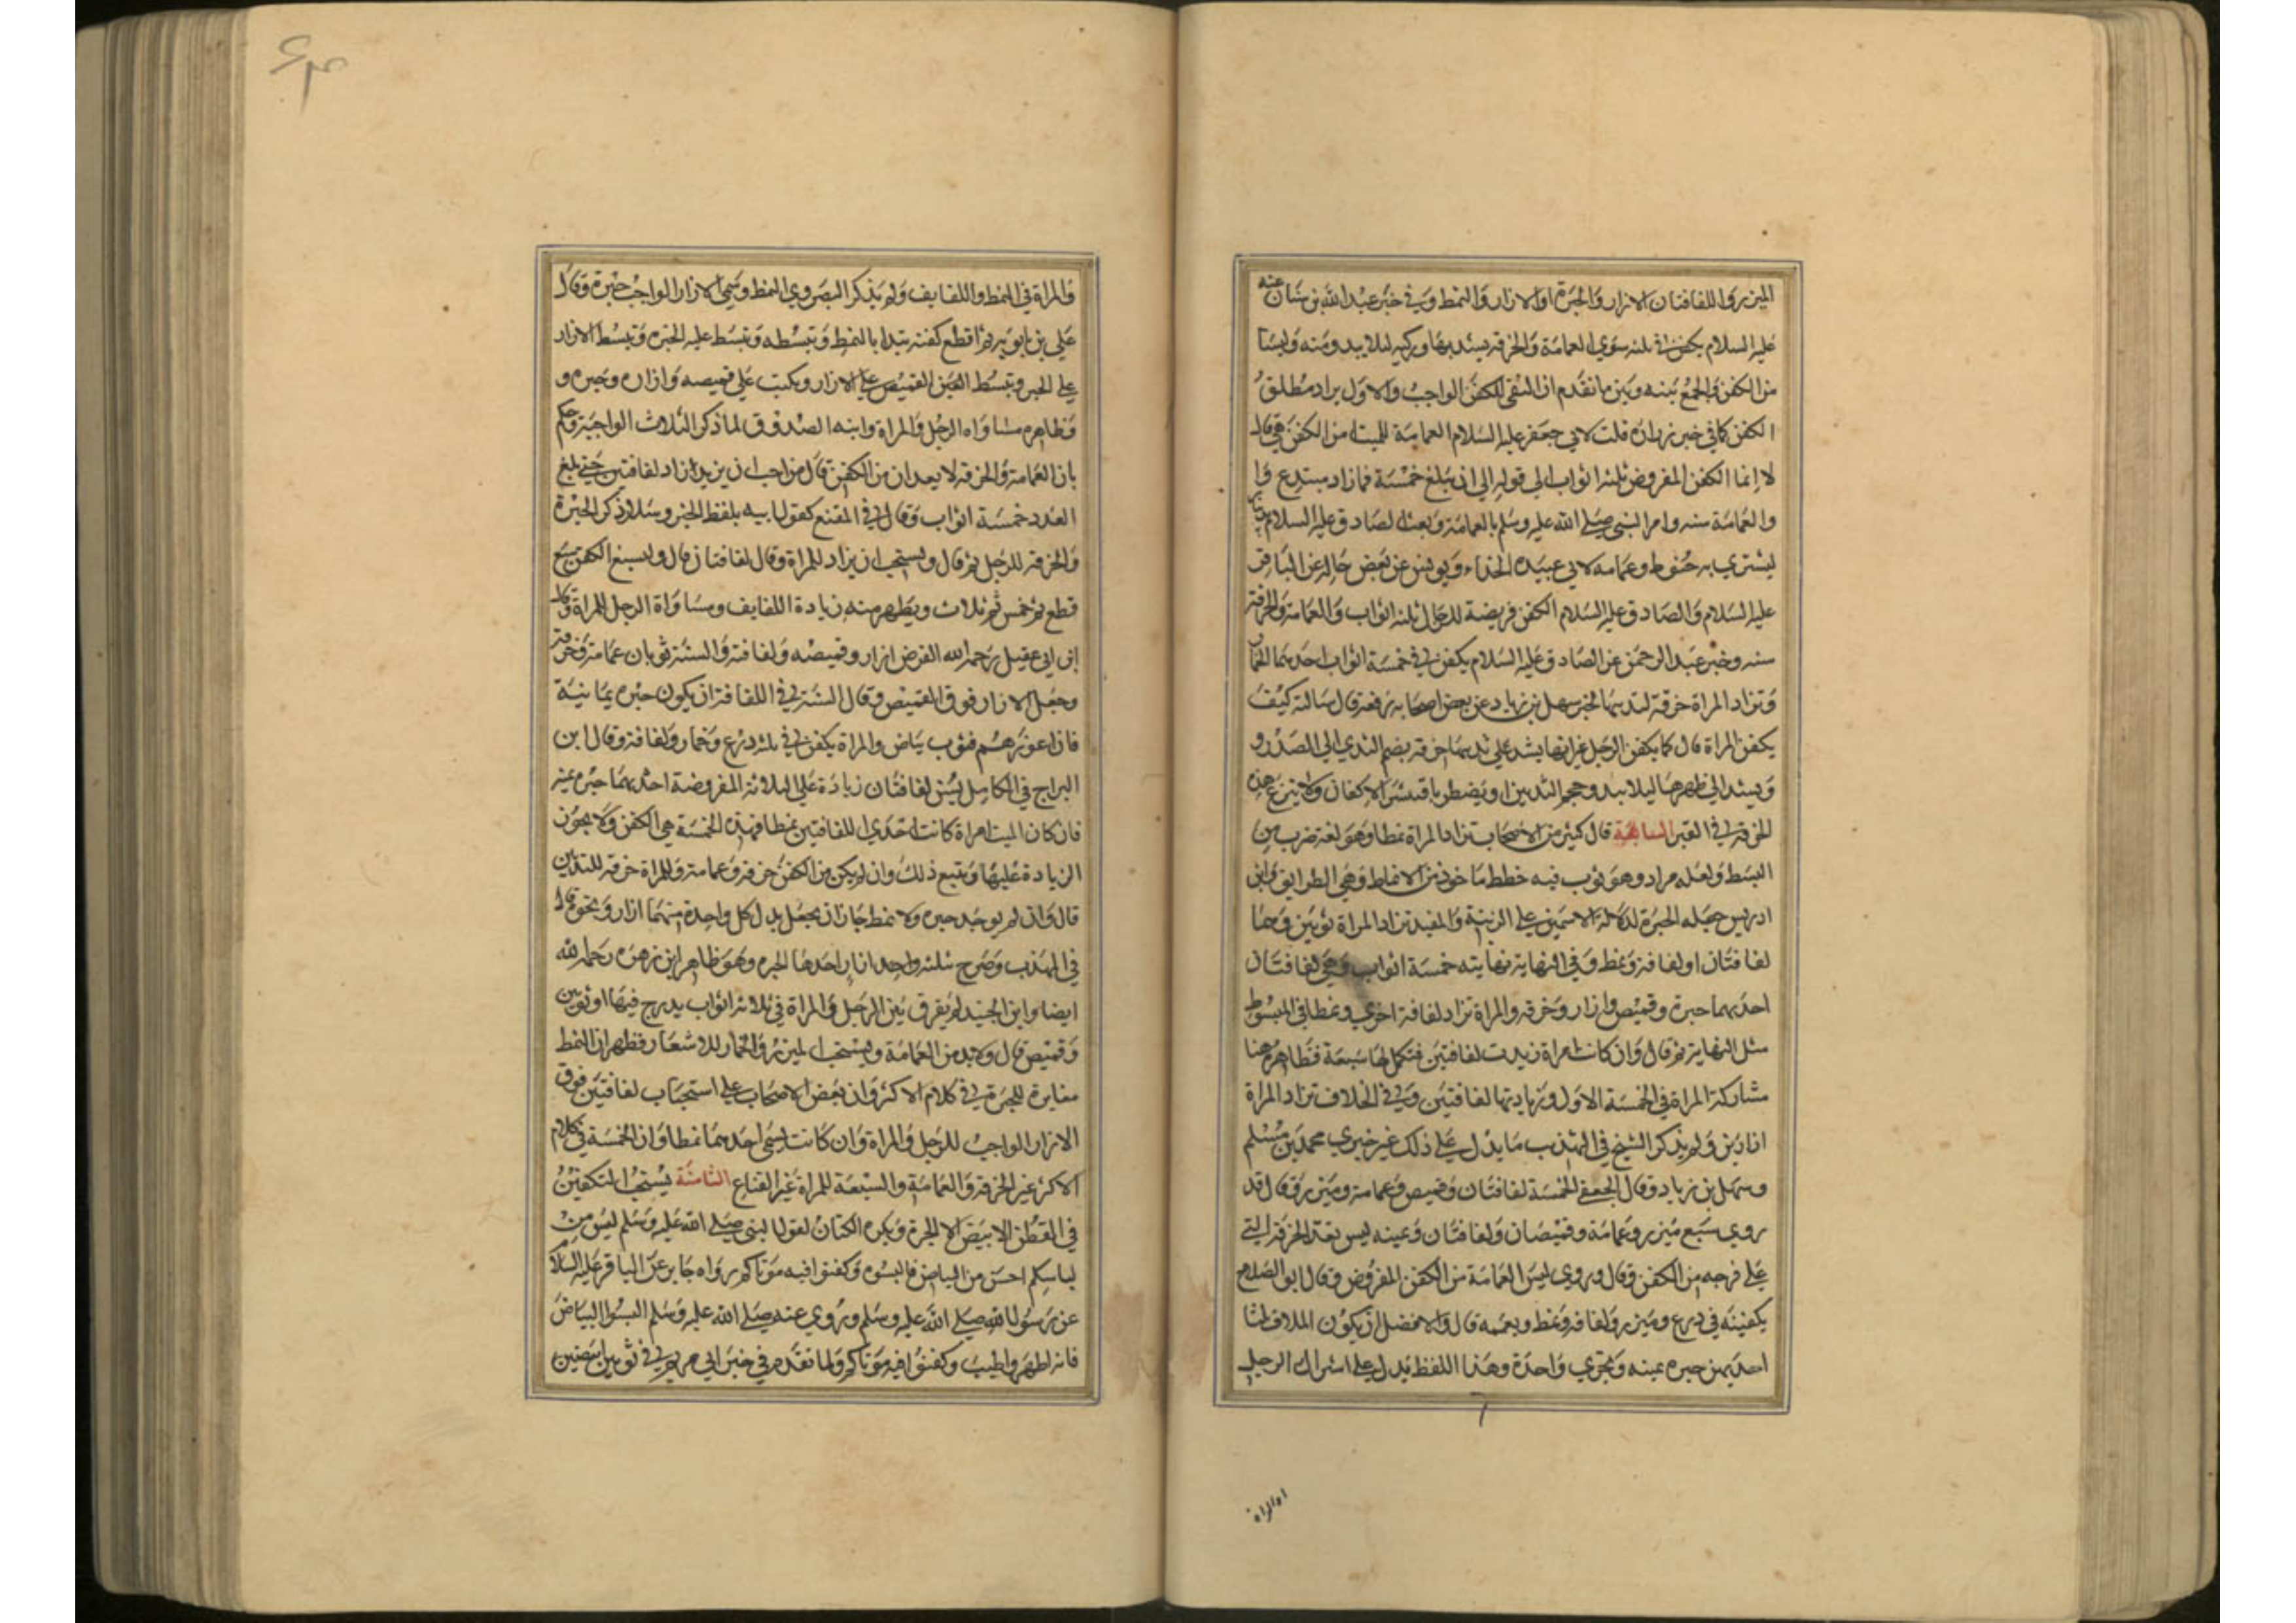 الميزر واللفافتان الازار والحبرة او الازار والنمط وفي خبر عبد الله بن سنان عنه
عليه السلام يكفن في ثلثه سوي العمامة والخرقه يشد بها وركيه لئلا يبدو منه وليستا
من الكفن والجمع بينه وبين ما تقدم ان النفي للكفن الواجب والاول يراد مطلق
الكفن كما في خبر زراره قلت لابي جعفر عليه السلام العمامة للميت من الكفن هي قال
لا انما الكفن المفروض ثلثه اثواب الي قوله الي ان يبلغ خمسة فما زاد مبتدع وا
والعمامة سنه وامر النبي صلي الله عليه وسلم بالعمامة وبعث الصادق عليه السلام
ليشتري به حنوط وعمامه لابي عبيده الحذاء ويونس عن بعض رجاله عن الباقر
عليه السلام والصادق عليه السلام الكفن فريضة للرجال ثلثه اثواب والعمامة والخرقة
سنه وخبر عبد الرحمن عن الصادق عليه السلام يكفن في خمسة اثواب احدهما الخمار
وتزاد المراة خرقة لثدييها لخبر سهل بن زياد عن بعض اصحابه رفعه قال سالته كيف
يكفن المراة قال كما يكفن الرجل غير انها يشد علي ثدييها خرقه يضم الثدي الي الصدر و
ويشد الي ظهرها ليلا يبدو حجم الثديين او يضطربا فتنتشر الاكفان ولا ينزع هذه
الخرقة في القبر السابعة قال كثير من الاصحاب تزاد المراة نمطا وهو لغة ضرب من
البسط ولعله مراد وهو ثوب فيه خطط ماخوذ من الانماط وهي الطرايق وابن
ادريس جعله الحبرة لدلالة الاسمين علي الزينة والمفيد تزاد المراة ثوبين وهما
لفافتان او لفافة ونمط وفي النهاية نهايته خمسة اثواب وهي لفافتان
احدهما حبرة وقميص وازار وخرقه والمراة تزاد لفافة اخري ونمطا في المبسوط
مثل النهاية ثم قال وان كانت امراة زيدت لفافتين فتكمل لها سبعة فظاهره هنا
مشاركة المراة في الخمسة الاول وزيادتها لفافتين وفي الخلاف تزاد المراة
ازارين ولم يذكر الشيخ في التهذيب ما يدل علي ذلك غير خبري محمد بن مسلم
وسهل بن زياد وقال الجعفي الخمسة لفافتان وقميص وعمامة وميزر وقال قد
روي سبع ميزر وعمامة وقميصان ولفافتان وعينه ليس بعد الخرقة التي
علي فرجه من الكفن وقال وروي ليس العمامة من الكفن المفروض وقال ابو الصلاح
يكفينه في درع وميزر ولفافه ونمط ويعممه قال والافضل ان يكون الملاف ثلثا
احديهن حبره يمينه ويجزي واحدة وهذا اللفظ يدل علي اشراك الرجل
او المراة
والمراة في النمط واللفايف ولم يذكر البصروي النمط وسمي الازار الواجب حبرة وقال
علي بن بابويه ثم اقطع كفنه يبتدا بالنمط وتبسطه وتبسط عليه الحبره وتبسط الازار
علي الحبر وتبسط القميص علي الازار ويكتب علي قميصه وازاره وحبره و
وظاهره مساواه الرجل والمراة وابنه الصدوق لما ذكر الثلاث الواجبة حكم
بان العمامة والخرقه لا يعدان من الكفن قال من احب ان يزيد زاد لفافتين حتي يبلغ
العدد خمسة اثواب وقال في المقنع كقول ابيه بلفظ الخبر وسلار ذكر الحبرة
والخرقه للرجل ثم قال ويستحب ان يزاد للمراة وقال لفافتان قال واسبغ الكفن سبع
قطع ثم خمس ثم ثلاث ويظهر منه زيادة اللفايف ومساواة الرجل للمراة وقال
ابن ابي عقيل رحمه الله الفرض ازار وقميصه ولفافة والسنة ثوبان عمامة وخرقة
وجعل الازار فوق القميص وقال السنة في اللفافة ان يكون حبره يمانية
فان اعوزهم فثوب بياض والمراة يكفن في ثلثه درع وخمار ولفافة وقال ابن
البراج في الكامل يسن لفافتان زيادة علي الثلاثة المفروضة احديهما حبره يمنيه
فان كان الميت امراة كانت احدي اللفافتين نمطا فهذه الخمسة هي الكفن ولا يجوز
الزيادة عليها ويتبع ذلك وان لم يكن من الكفن خرقه وعمامة وللمراة خرقه للثديين
قال وان لم يوجد حبره ولا نمط جاز ان يجعل بدل كل واحدة منهما ازار ونحوه قال
في المهذب وصرح بثلثه واحد ازار احدها الحبره وهو ظاهر ابن زهره رحمه الله
ايضا وابن الجنيد لم يفرق بين الرجل والمراة في ثلاثه اثواب يدرج فيها او ثوبين
وقميص قال ولابد من العمامة ويستحب الميزر والخمار للاشعار فظهر ان النمط
مغايرة للحبرة في كلام الاكثر وان بعض الاصحاب علي استحباب لفافتين فوق
الازار الواجب للرجل والمراة وان كانت تسمي احديهما نمطا وان الخمسة في كلام
الاكثر غير الخرقه والعمامة والسبعة للمراة غير القناع الثامنة يستحب التكفين
في القطن الابيض الا الحبرة ويكره الكتان لقول النبي صلي الله عليه وسلم ليس من
لباسكم احسن من البياض فالبسوه وكفنوا فيه موتاكم رواه جابر عن الباقر عليه السلام
عن رسول الله صلي الله عليه وسلم وروي عنه صلي الله عليه وسلم البسوا البياض
فانه اطهر واطيب وكفنوا فيه موتاكم ولما تقدم في خبر ابي مريم في ثوبين ابيضين